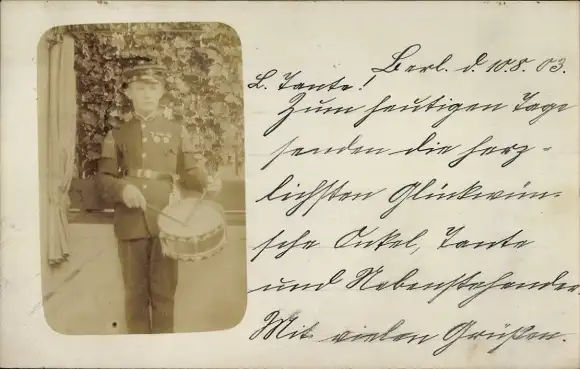 Berl. d. 10.8.03.
L. Tante!
Zum heutigen Tage
senden die herz-
lichsten Glückwün-
sche Onkel, Tante
und Nebenstehender.
Mit vielen Grüßen.